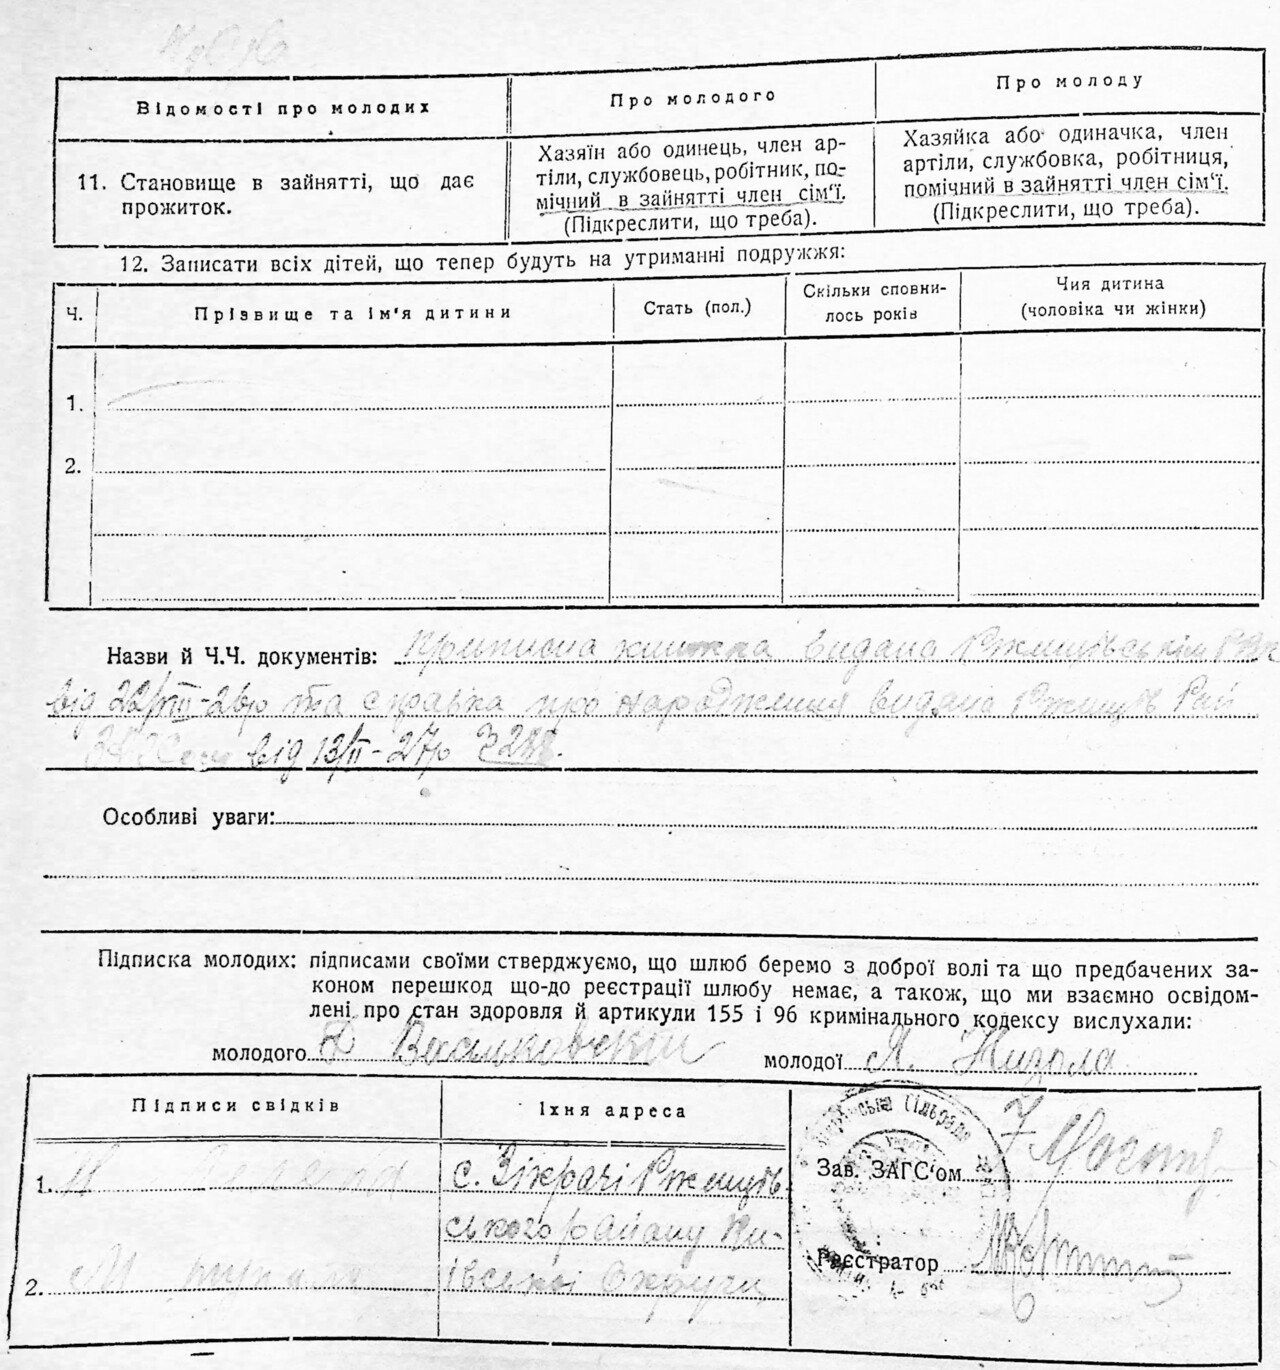 Відомості про молодих
Про молодого
Про молоду
11. Становище в зайнятті, що дає
прожиток.
Хазяїн або одинець, член ар-
тіли, службовець, робітник, по-
мічний в зайнятті член сім‘ї.
(Підкреслити, що треба).
Хазяйка або одиначка, член
артіли, службовка, робітниця,
помічний в зайнятті член сім‘ї.
(Підкреслити, що треба).
12. Записати всіх дітей, що тепер будуть на утриманні подружжя:
Ч.
Прізвище та ім‘я дитини
Стать (пол.)
Скільки сповни-
лось років
Чия дитина
(чоловіка чи жінки)
1.
2.
Назви й Ч.Ч. документів: Приписна книжка видана Ржищівським РВК
від 22/VIII-26р та справка про народження видана Ржищів Рай
від 13/II-27р
Особливі уваги:
Підписка молодих: підписами своїми стверджуємо, що шлюб беремо з доброї волі та що предбачених за-
коном перешкод що-до реєстрації шлюбу немає, а також, що ми взаємно освідом-
лені про стан здоровля й артикули 155 і 96 кримінального кодексу вислухали:
молодого
молодої Я.
Підписи свідків
Їхня адреса
1.
с. Зікрачі Ржищів-
ського району Ки-
2.
ївської Округи
Сільрада
Зав. ЗАГС‘ом
Реєстратор